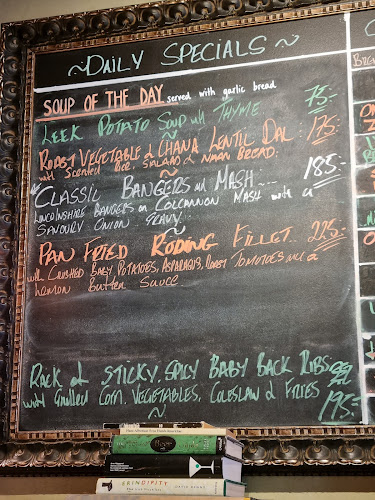 ~DAILY SPECIALS~
SOUP OF THE DAY served with garlic bread
LEEK POTATO SOUP with THYME 75-
~
ROAST VEGETABLE & CHANA LENTIL DAL 175-
with SCENTED RICE, SALAD & NAAN BREAD.
~
CLASSIC BANGERS ON MASH 185-
LINCOLNSHIRE BANGERS on COLCANNON MASH with a
SAVOURY ONION GRAVY
~
PAN FRIED RODING FILLET 225-
with CRUSHED BABY POTATOES, ASPARAGUS, ROAST TOMOTOES with a
Lemon Butter Sauce
RACK of STICKY, SPICY BABY BACK RIBS
with Grilled Corn, VEGETABLES, COLESLAW & FRIES 195-
~